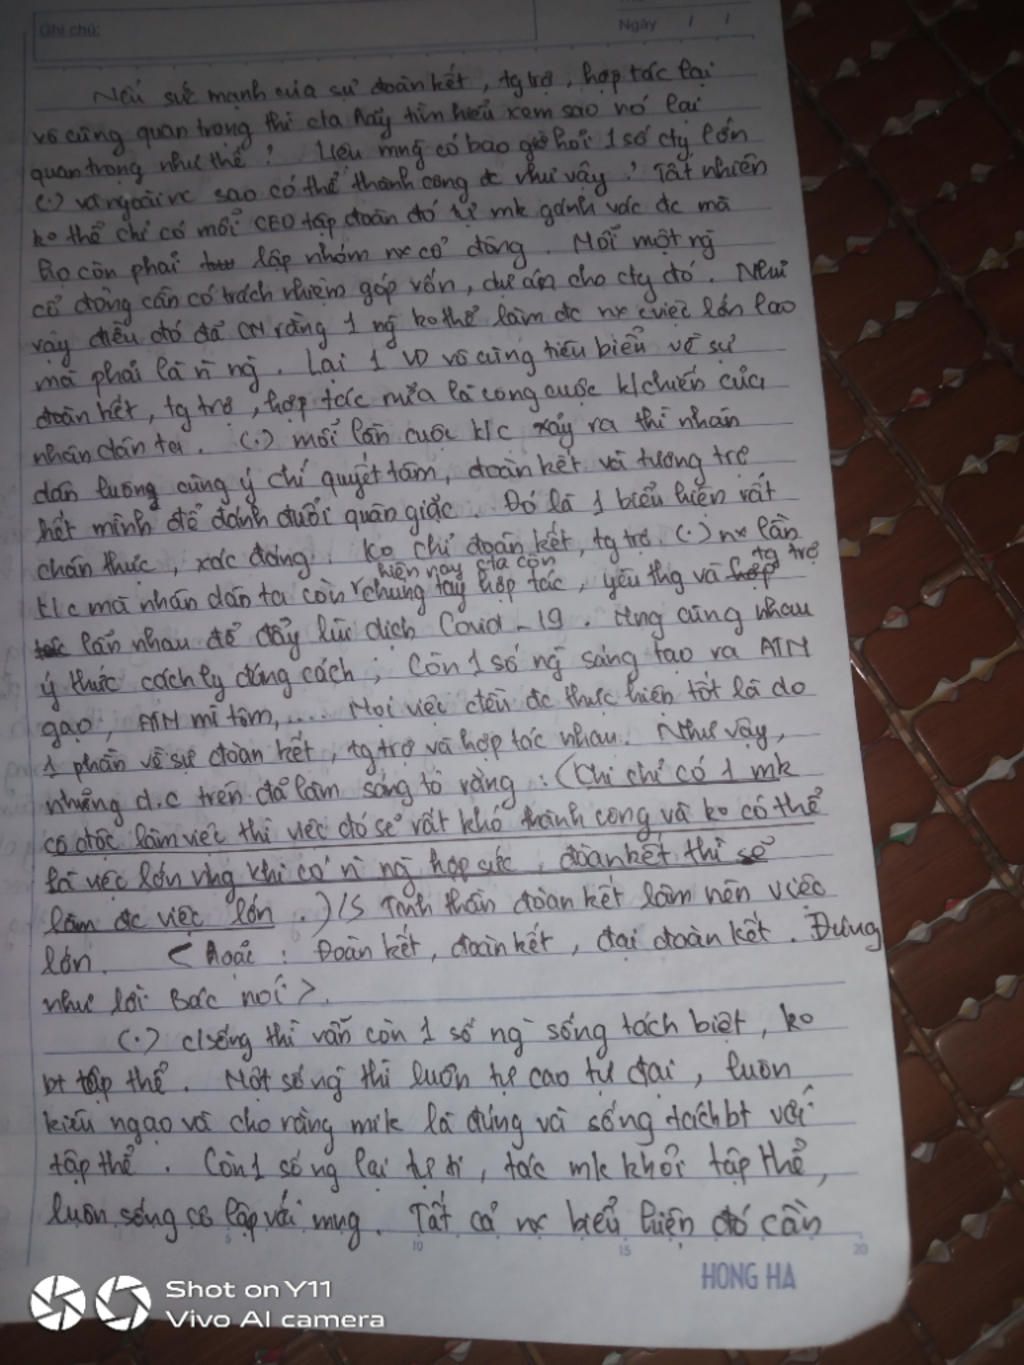 Ghi chú:
Ngày / /
Nếu sức mạnh của sự đoàn kết, tg trợ, hợp tác lại
vô cùng quan trọng thì cta hãy tìm hiểu xem sao nó lại
quan trọng như thế? Liệu mng có bao giờ hỏi 1 số cty lớn
(.) và ngoài nc sao có thể thành công đc như vậy? Tất nhiên
ko thể chỉ có mỗi CEO tập đoàn đó tự mk gánh vác đc mà
họ còn phải lập nhóm nx cổ đông. Mỗi một ng
cổ đông cần có trách nhiệm góp vốn, dự án cho cty đó. Như
vậy điều đó đã CM rằng 1 ng ko thể làm đc nx cviệc lớn lao
mà phải là n ng. Lại 1 VD vô cùng tiêu biểu về sự
đoàn kết, tg trợ, hợp tác nữa là công cuộc k/chiến của
nhân dân ta. (.) mỗi lần cuộc k/c xảy ra thì nhân
dân luông cùng ý chí quyết tâm, đoàn kết và tương trợ
hết mình để đánh đuổi quân giặc. Đó là 1 biểu hiện rất
chân thực, xác đáng. Ko chỉ đoàn kết, tg trợ (.) nx lần
k/c mà nhân dân ta còn hiện nay cta còn chung tay hợp tác, yêu thg và hợp tg trợ
tác lẫn nhau để đẩy lùi dịch Covid-19. Mng cùng nhau
ý thức cách ly đúng cách; Còn 1 số ng sáng tạo ra ATM
gạo, ATM mì tôm,.... Mọi việc đều đc thực hiện tốt là do
1 phần về sự đoàn kết, tg trợ và hợp tác nhau. Như vậy,
những d.c trên đã làm sáng tỏ rằng: (Khi chỉ có 1 mk
cô độc làm việc thì việc đó sẽ rất khó thành công và ko có thể
là việc lớn nhg khi có n ng hợp sức, đoàn kết thì sẽ
làm đc việc lớn.)/S Tinh thần đoàn kết làm nên việc
lớn. < hoặc: Đoàn kết, đoàn kết, đại đoàn kết. Đúng
như lời Bác nói>.
(.) c/sống thì vẫn còn 1 số ng sống tách biệt, ko
bt tập thể. Một số ng thì luôn tự cao tự đại, luôn
kiêu ngạo và cho rằng mk là đúng và sống tách bt với
tập thể. Còn 1 số ng lại tự ti, tác mk khỏi tập thể,
luôn sống cô lập với mng. Tất cả nx biểu hiện đó cần
5 10 15 20
HONG HA
Shot on Y11
Vivo AI camera